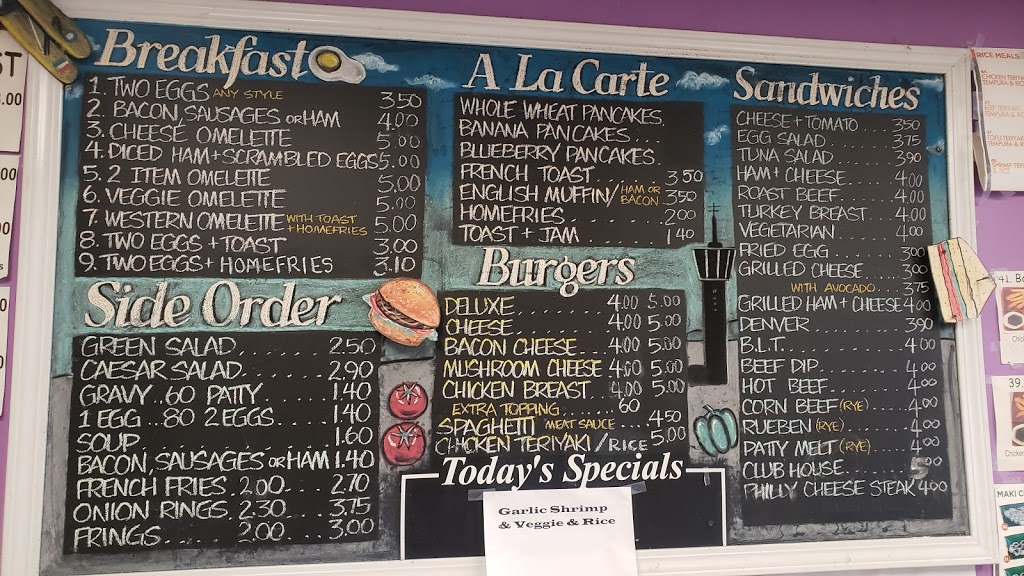 Breakfast
1. TWO EGGS ANY STYLE 3.50
2. BACON, SAUSAGES OR HAM 4.00
3. CHEESE OMELETTE 5.00
4. DICED HAM + SCRAMBLED EGGS 5.00
5. 2 ITEM OMELETTE 5.00
6. VEGGIE OMELETTE 5.00
7. WESTERN OMELETTE WITH TOAST + HOMEFRIES 5.00
8. TWO EGGS + TOAST 3.00
9. TWO EGGS + HOMEFRIES 3.10
Side Order
GREEN SALAD 2.50
CAESAR SALAD 2.90
GRAVY .60 PATTY 1.40
1 EGG .80 2 EGGS 1.40
SOUP 1.60
BACON, SAUSAGES OR HAM 1.40
FRENCH FRIES 2.00 2.70
ONION RINGS 2.30 3.75
FRINGS 2.00 3.00
A La Carte
WHOLE WHEAT PANCAKES
BANANA PANCAKES
BLUEBERRY PANCAKES
FRENCH TOAST 3 50
ENGLISH MUFFIN/ HAM OR BACON 3 50
HOMEFRIES 2 00
TOAST + JAM 1 40
Burgers
DELUXE 4.00 5.00
CHEESE 4.00 5.00
BACON CHEESE 4.00 5.00
MUSHROOM CHEESE 4.00 5.00
CHICKEN BREAST 4.00 5.00
EXTRA TOPPING .60
SPAGHETTI (MEAT SAUCE) 4 50
CHICKEN TERIYAKI / RICE 5.00
Today's Specials
Garlic Shrimp
& Veggie & Rice
Sandwiches
CHEESE + TOMATO 3 50
EGG SALAD 3 75
TUNA SALAD 3 90
HAM + CHEESE 4 00
ROAST BEEF 4 00
TURKEY BREAST 4 00
VEGETARIAN 4 00
FRIED EGG 3 00
GRILLED CHEESE 3 00
WITH AVOCADO 3 75
GRILLED HAM + CHEESE 4 00
DENVER 3 90
B.L.T. 4 00
BEEF DIP 4 00
HOT BEEF 4 00
CORN BEEF (RYE) 4 00
RUEBEN (RYE) 4 00
PATTY MELT (RYE) 4 00
CLUB HOUSE 5 00
PHILLY CHEESE STEAK 4 00
RICE MEALS
41. B
39.
MAKI C